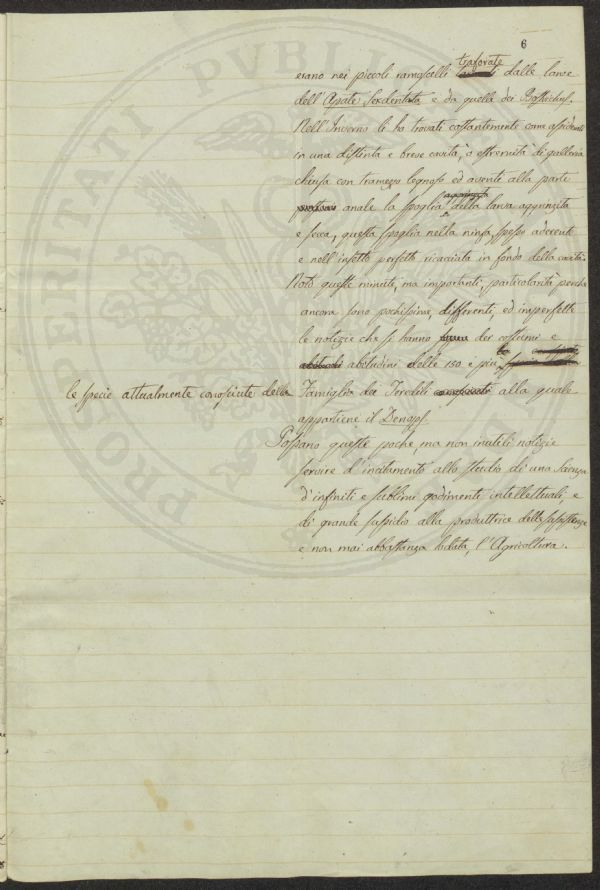 6
traforate
erano nei piccoli ramoscelli dalle larve
dell'Apate Sexdentata e da quelle dei Bostrichus.
Nell'Inverno li ho trovati costantemente come assiderati
in una distinta e breve cavità, o estremità di galleria
chiusa con tramezzo legnoso ed avente alla parte
anale la spoglia della larva aggrinzita
e secca, questa spoglia nella ninfa, spesso aderente
e nell'insetto perfetto ricacciata in fondo della cavità.
Noto queste minute, ma importanti, particolarità perchè
ancora sono pochissime, differenti, ed imperfette
le notizie che si hanno dei costumi e
abitudini delle 150 e più
le specie attualmente conosciute della Famiglia dei Teredili alla quale
appartiene il
Possano queste poche, ma non inutili notizie
servire d'incitamento allo studio di una Scienza
d'infiniti e sublimi godimenti intellettuali, e
di grande sussidio alla produttrice della sussistenza
e non mai abbastanza lodata, l'Agricoltura.
PRO VERITATI PVBLIC